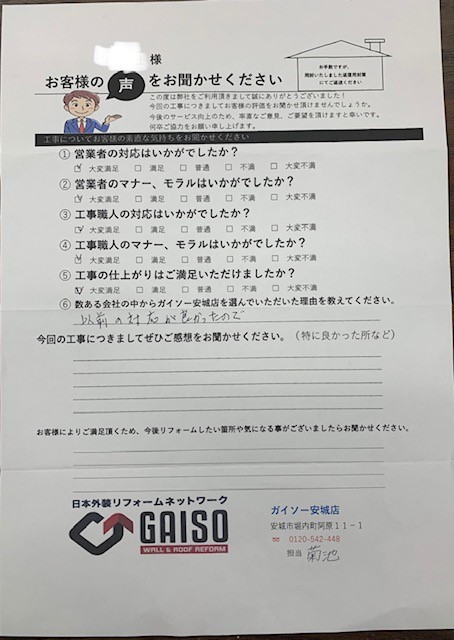 様
お客様の声をお聞かせください
お手数ですが、
同封いたしました返信用封筒
にてご返送ください
この度は弊社をご利用頂きまして誠にありがとうございました！
今回の工事につきましてお客様の評価をお聞かせ頂けませんでしょうか。
今後のサービス向上のため、率直なご意見、ご要望を頂けますと幸いです。
何卒ご協力をお願い申し上げます。
工事についてお客様の素直な気持ちをお聞かせください
① 営業者の対応はいかがでしたか？
☑ 大変満足 □ 満足 □ 普通 □ 不満 □ 大変不満
② 営業者のマナー、モラルはいかがでしたか？
☑ 大変満足 □ 満足 □ 普通 □ 不満 □ 大変不満
③ 工事職人の対応はいかがでしたか？
☑ 大変満足 □ 満足 □ 普通 □ 不満 □ 大変不満
④ 工事職人のマナー、モラルはいかがでしたか？
☑ 大変満足 □ 満足 □ 普通 □ 不満 □ 大変不満
⑤ 工事の仕上がりはご満足いただけましたか？
☑ 大変満足 □ 満足 □ 普通 □ 不満 □ 大変不満
⑥ 数ある会社の中からガイソー安城店を選んでいただいた理由を教えてください。
以前の対応が良かったので
今回の工事につきましてぜひご感想をお聞かせください。（特に良かった所など）
お客様によりご満足頂くため、今後リフォームしたい箇所や気になる事がございましたらお聞かせください。
日本外装リフォームネットワーク
GAISO
WALL & ROOF REFORM
ガイソー安城店
安城市堀内町阿原１１－１
☎ 0120-542-448
担当 菊池